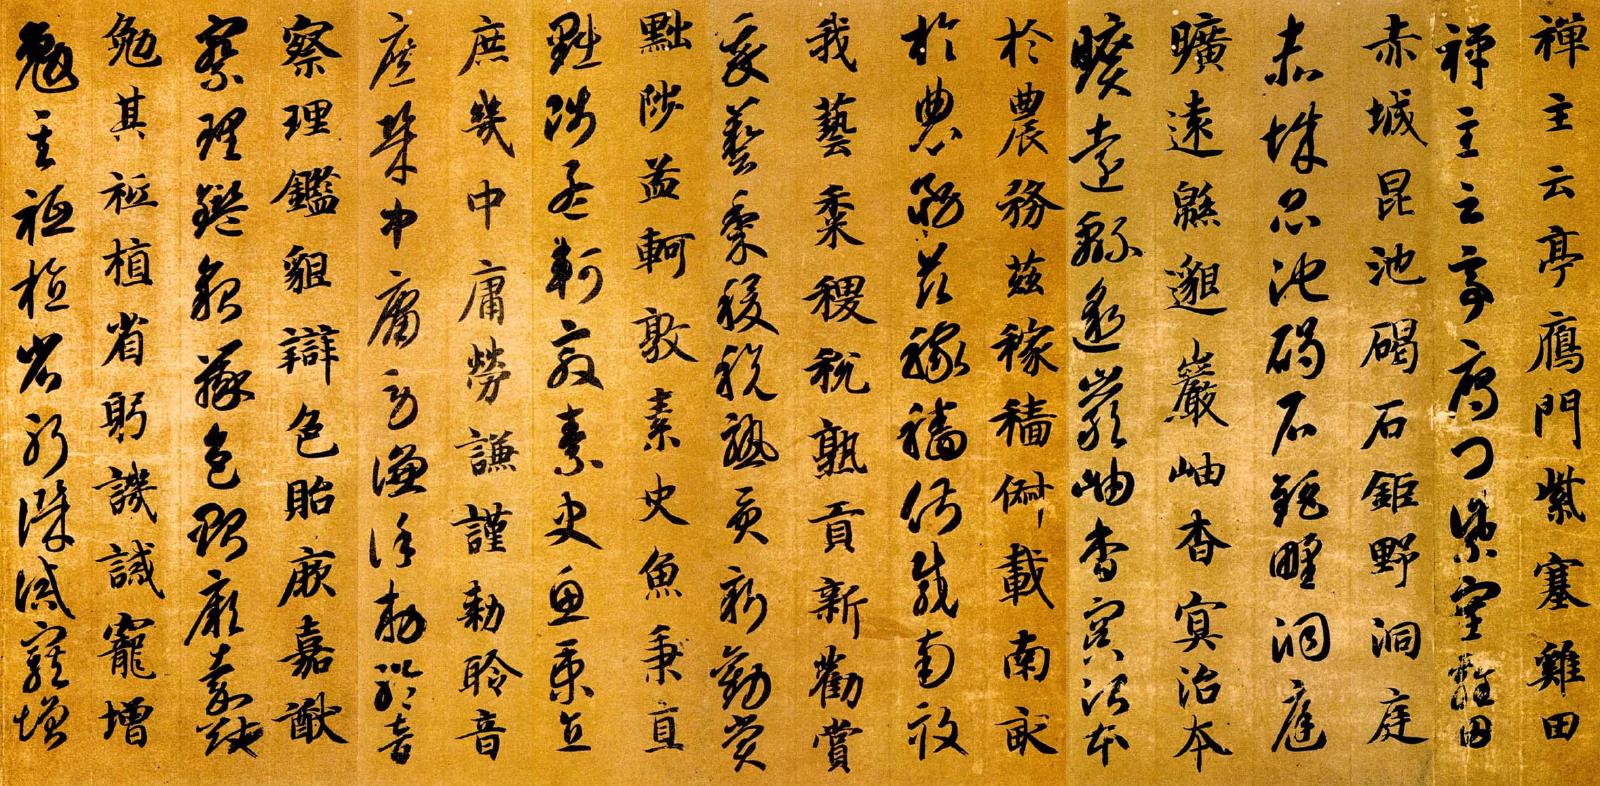 禪主云亭鴈門紫塞雞田
禪主云亭鴈門紫塞雞田
赤城昆池碣石鉅野洞庭
赤城昆池碣石鉅野洞庭
曠遠緜邈巖岫杳冥治本
曠遠緜邈巖岫杳冥治本
於農務茲稼穡俶載南畝
於農務茲稼穡俶載南畝
我藝黍稷稅熟貢新勸賞
我藝黍稷稅熟貢新勸賞
黜陟孟軻敦素史魚秉直
黜陟孟軻敦素史魚秉直
庶幾中庸勞謙謹勑聆音
庶幾中庸勞謙謹勑聆音
察理鑑貌辯色貽厥嘉猷
察理鑑貌辯色貽厥嘉猷
勉其祗植省躬譏誡寵增
勉其祗植省躬譏誡寵增